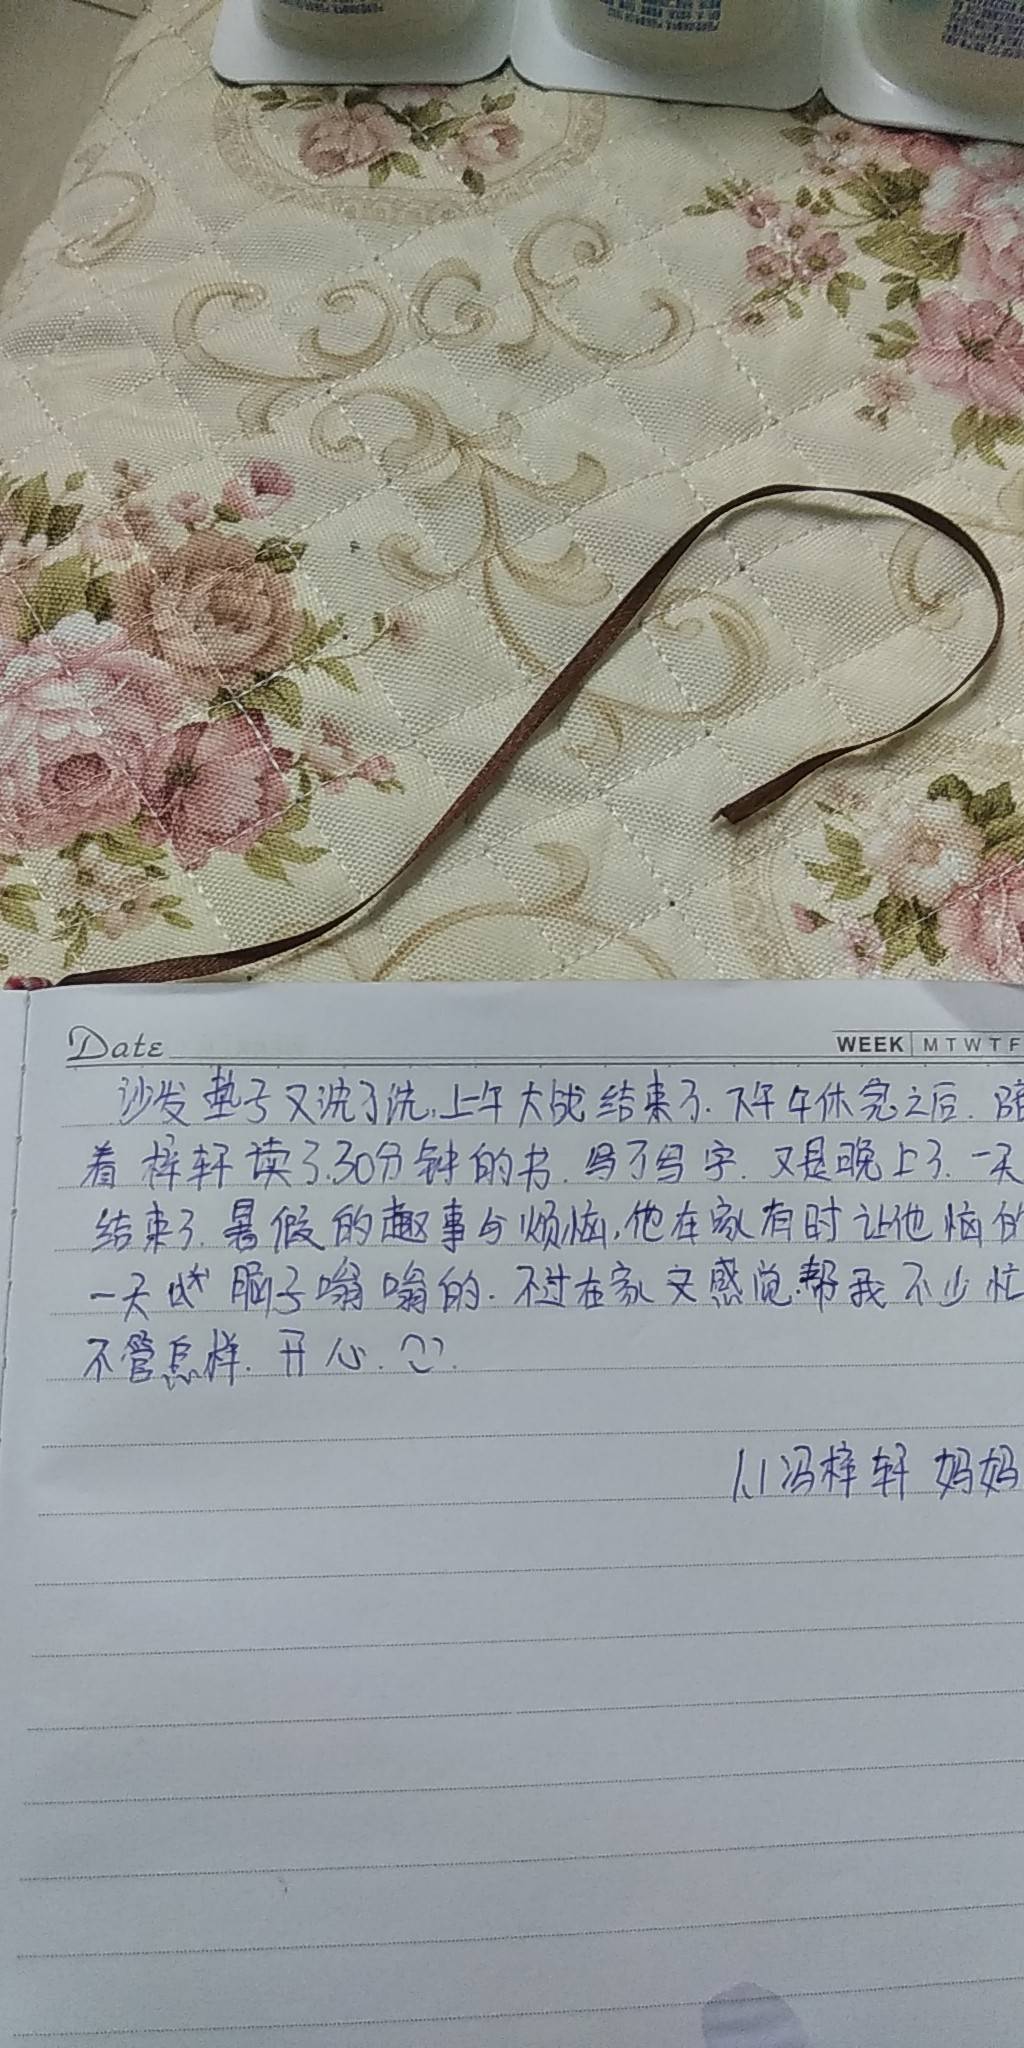 Date
WEEK M T W T F
沙发垫子又洗了洗,上午大战结来了.下午午休完之后.陪
着梓轩读了.30分钟的书.写了写字.又是晚上了.一天
结来了.暑假的趣事与烦恼,他在家有时让他恼的
一天 脑子嗡嗡的.不过在家又感觉.帮我不少忙
不管怎样.开心.
1.1冯梓轩 妈妈